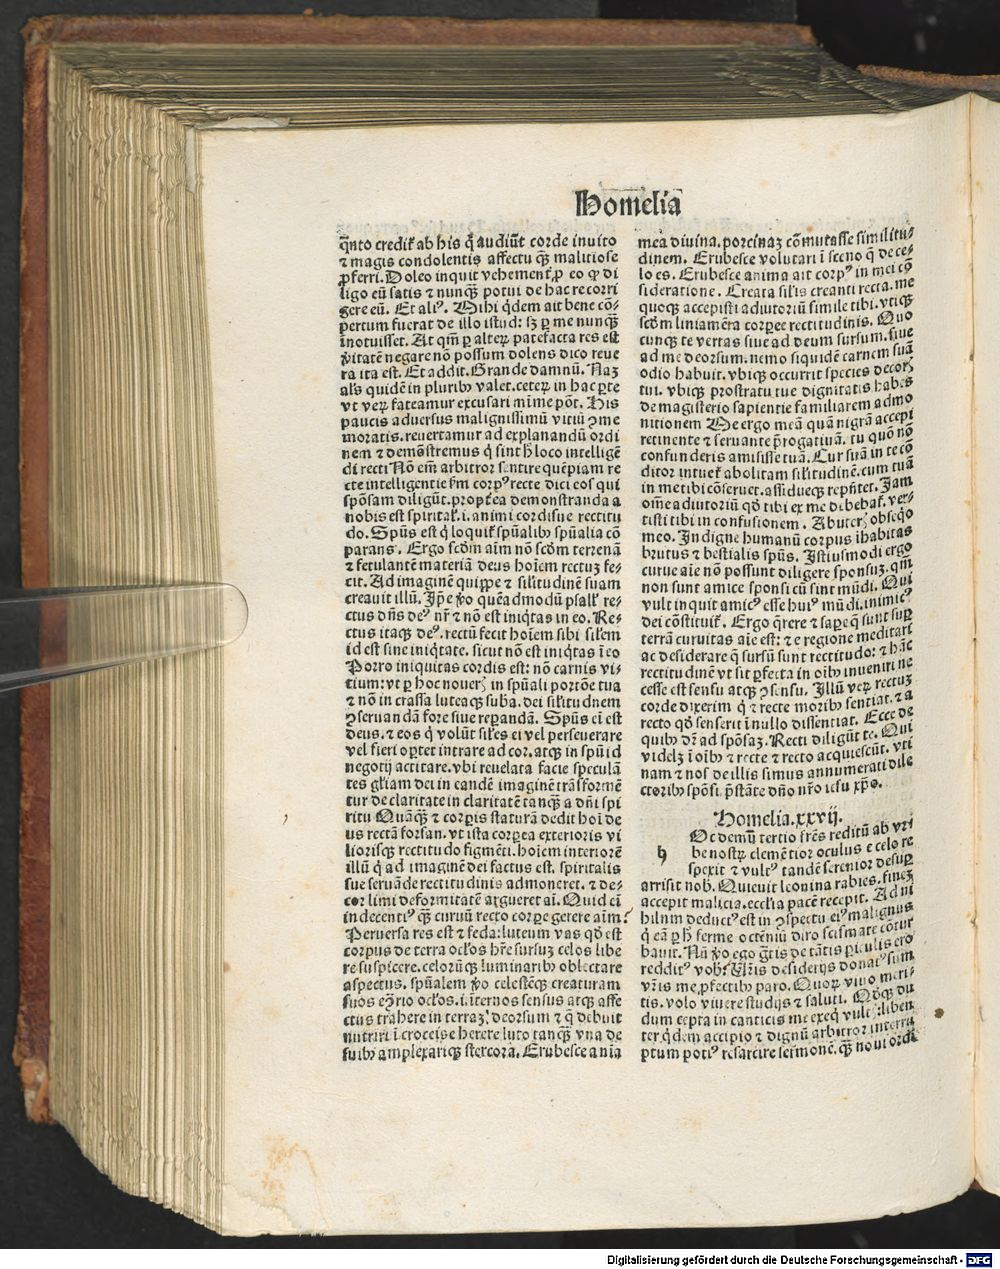 Homelia
q̃nto credit̃ ab his q̃ audiũt corde inuito
⁊ magis condolentis affectu q̃ꝫ malitiose
ꝓferri. Doleo inquit vehemẽt̃ ꝓ eo ꝙ di
ligo eũ satis ⁊ nunq̃ꝫ potui de hac re corri
gere eũ. Et aliꝰ. Mihi q̃dem ait bene cõ-
pertum fuerat de illo istud: sꝫ ꝑ me nunq̃ꝫ
ĩnotuisset. At qm̃ ꝑ alteꝝ patefacta res est
ꝟitatẽ negare nõ possum dolens dico reue
ra ita est. Et addit. Grande damnũ. Naꝫ
al̃s quidẽ in pluribꝰ valet. ceteꝝ in hac ꝑte
vt veꝝ fateamur excusari mĩme põt. His
paucis aduersus malignissimũ vitiũ ꝯme
moratis. reuertamur ad explanandũ ordi
nem ⁊ demõstremus q̃ sint h̃ loco intelligẽ
di recti Nõ em̃ arbitror sentire quẽpiam re
cte intelligentie ẜm corpꝰ recte dici eos qui
spõsam diligũt. propt̃ea demonstranda a
nobis est spirital̃. i. animi cordisue rectitu
do. Spũs est q̃ loquit̃ spũalibꝰ spũalia cõ
parans. Ergo scd̃m aĩm nõ scd̃m terrenã
⁊ fetulantẽ materiã deus hoĩem rectuꝫ fe-
cit. Ad imaginẽ quippe ⁊ sil̃itudinẽ suam
creauit illũ. Ip̃e ꝟo quẽadmodũ psall̃ re-
ctus dñs deꝰ nr̃ ⁊ nõ est iniq̃tas in eo. Re-
ctus itaqꝫ deꝰ. rectũ fecit hoĩem sibi sil̃em
id est sine iniq̃tate. sicut nõ est iniq̃tas ĩ eo
Porro iniquitas cordis est: nõ carnis vi-
tium: vt ꝑ hoc noueris in spũali portõe tua
⁊ nõ in crassa luteaqꝫ suba. dei sil̃itudinem
ꝯseruandã fore siue reꝑandã. Spũs ei est
deus. ⁊ eos q̃ volũt sil̃es ei vel perseuerare
vel fieri oꝑtet intrare ad cor. atqꝫ in spũ id
negotij actitare. vbi reuelata facie speculã
tes gl̃iam dei in candẽ imaginẽ trãsformẽ
tur de claritate in claritatẽ tanq̃ꝫ a dñi spi
ritu Quãq̃ꝫ ⁊ corpis staturã dedit hoĩ de
us rectã forsan. vt ista corꝑea exterioris vi
liorisqꝫ rectitudo figmẽti. hoĩem interiorẽ
illũ q̃ ad imaginẽ dei factus est. spiritalis
sue seruãde rectitudinis admoneret. ⁊ de-
cor limi deformitatẽ argueret aĩ. Quid eĩ
indecentiꝰ q̃ꝫ curuũ recto corꝑe gerere aĩm?
Peruersa res est ⁊ feda: luteum vas qd̃ est
corpus de terra ocl̃os hr̃e sursuꝫ celos libe
re suspicere. celorũqꝫ luminaribꝰ oblectare
aspectus. spũalem ꝟo celestẽqꝫ creaturam
suos eꝯ̃rio ocl̃os. i. ĩternos sensus atqꝫ affe
ctus trahere in terraꝫ deorsum ⁊ q̃ debuit
nutriri ĩ croceis herere luto tanq̃ꝫ vna de
suibꝰ amplexariqꝫ stercora. Erubesce anĩa
mea diuina. porcinaꝫ cõmutasse similitu-
dinem. Erubesce volutari ĩ sceno q̃ de ce-
lo es. Erubesce anima ait corpꝰ in mei cõ
sideratione. Creata sil̃is creanti recta. me
quoqꝫ accepisti adiutoriũ simile tibi. vtiqꝫ
scd̃m liniamẽta corꝑee rectitudinis. Quo
cunqꝫ te vertas siue ad deum sursum. siue
ad me deorsum. nemo siquidẽ carnem suã
odio habuit. vbiqꝫ occurrit species decorꝫ
tui. vbiqꝫ prostratu tue dignitatis habes
de magisterio sapientie familiarem admo
nitionem Me ergo meã quã nigrã accepi
retinente ⁊ seruante p̃rogatiuã. tu quõ nõ
confunderis amisisse tuã. Cur suã in te cõ
ditor intuet̃ abolitam sil̃itudinẽ. cum tuã
in me tibi cõseruet. assidueqꝫ rep̃ñtet. Jam
om̃e adiutoriũ qd̃ tibi ex me dibebat̃. ver-
tisti tibi in confusionem. Abuterꝭ obseq̃o
meo. Indigne humanũ corpus ĩhabitas
brutus ⁊ bestialis spũs. Istiusmodi ergo
curue aĩe nõ possunt diligere sponsuꝫ. qm̃
non sunt amice sponsi cũ sint mũdi. Qui
vult inquit amicꝰ esse huiꝰ mũdi. inimicꝰ
dei cõstituit̃. Ergo q̃rere ⁊ saꝑe q̃ sunt suꝑ
terrã curuitas aĩe est: ⁊ e regione meditari
ac desiderare q̃ sursũ sunt rectitudo: ⁊ hãc
rectitudinẽ vt sit ꝑfecta in oĩbꝰ inueniri ne
cesse est sensu atqꝫ ꝯsensu. Illũ veꝝ rectuꝫ
corde dixerim q̃ ⁊ recte moribꝰ sentiat. ⁊ a
recto qd̃ senserit ĩ nullo dissentiat. Ecce de
quibꝰ dr̃ ad spõsaꝫ. Recti diligũt te. Qui
videlꝫ ĩ oĩbꝰ ⁊ recte ⁊ recto acquiescũt. vti
nam ⁊ nos de illis simus annumerati dile
ctoribꝰ spõsi. p̃stãte dño nr̃o iesu xp̃o.
Homelia. xxvij.
h Oc demũ tertio fr̃es reditũ ab vri
be nostꝝ clemẽtior oculus e celo re
spexit ⁊ vultꝰ tandẽ serenior desuꝑ
arrisit nob̃. Quieuit leonina rabies. fineꝫ
accepit malicia. eccl̃ia pacẽ recepit. Ad ni
hilum deductꝰ est in ꝯspectu eiꝰ malignus
q̃ eã ꝑ h̃ ferme octẽniũ diro scismate cõtur
bauit. Nũ ꝟo ego gr̃tis de tãtis ꝑiculis ero
redditꝰ vob̃? Vr̃is desiderijs donatꝰ sum
vr̃is me ꝓfectibꝰ paro. Quoꝝ viuo meri-
tis. volo viuere studijs ⁊ saluti. Qd̃qꝫ du
dum cepta in canticis me exeq̃ vultꝭ: liben
ter q̃dem accipio ⁊ dignũ arbitror interru
ptum potiꝰ resarcire sermonẽ. q̃ꝫ noui ordi
Digitalisierung gefördert durch die Deutsche Forschungsgemeinschaft - DFG